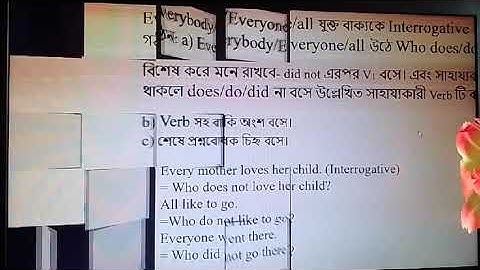 Everybody/Everyone/all যুক্ত বাক্যকে Interrogative
a) Everybody/Everyone/all উঠে Who does/do
বিশেষ করে মনে রাখবে- did not এরপর V₁ বসে। এবং সাহায্য
থাকলে does/do/did না বসে উল্লেখিত সাহায্যকারী Verb টি
b) Verb সহ বাকি অংশ বসে।
c) শেষে প্রশ্নবোধক চিহ্ন বসে।
Every mother loves her child. (Interrogative)
= Who does not love her child?
All like to go.
=Who do not like to go?
Everyone went there.
= Who did not go there?